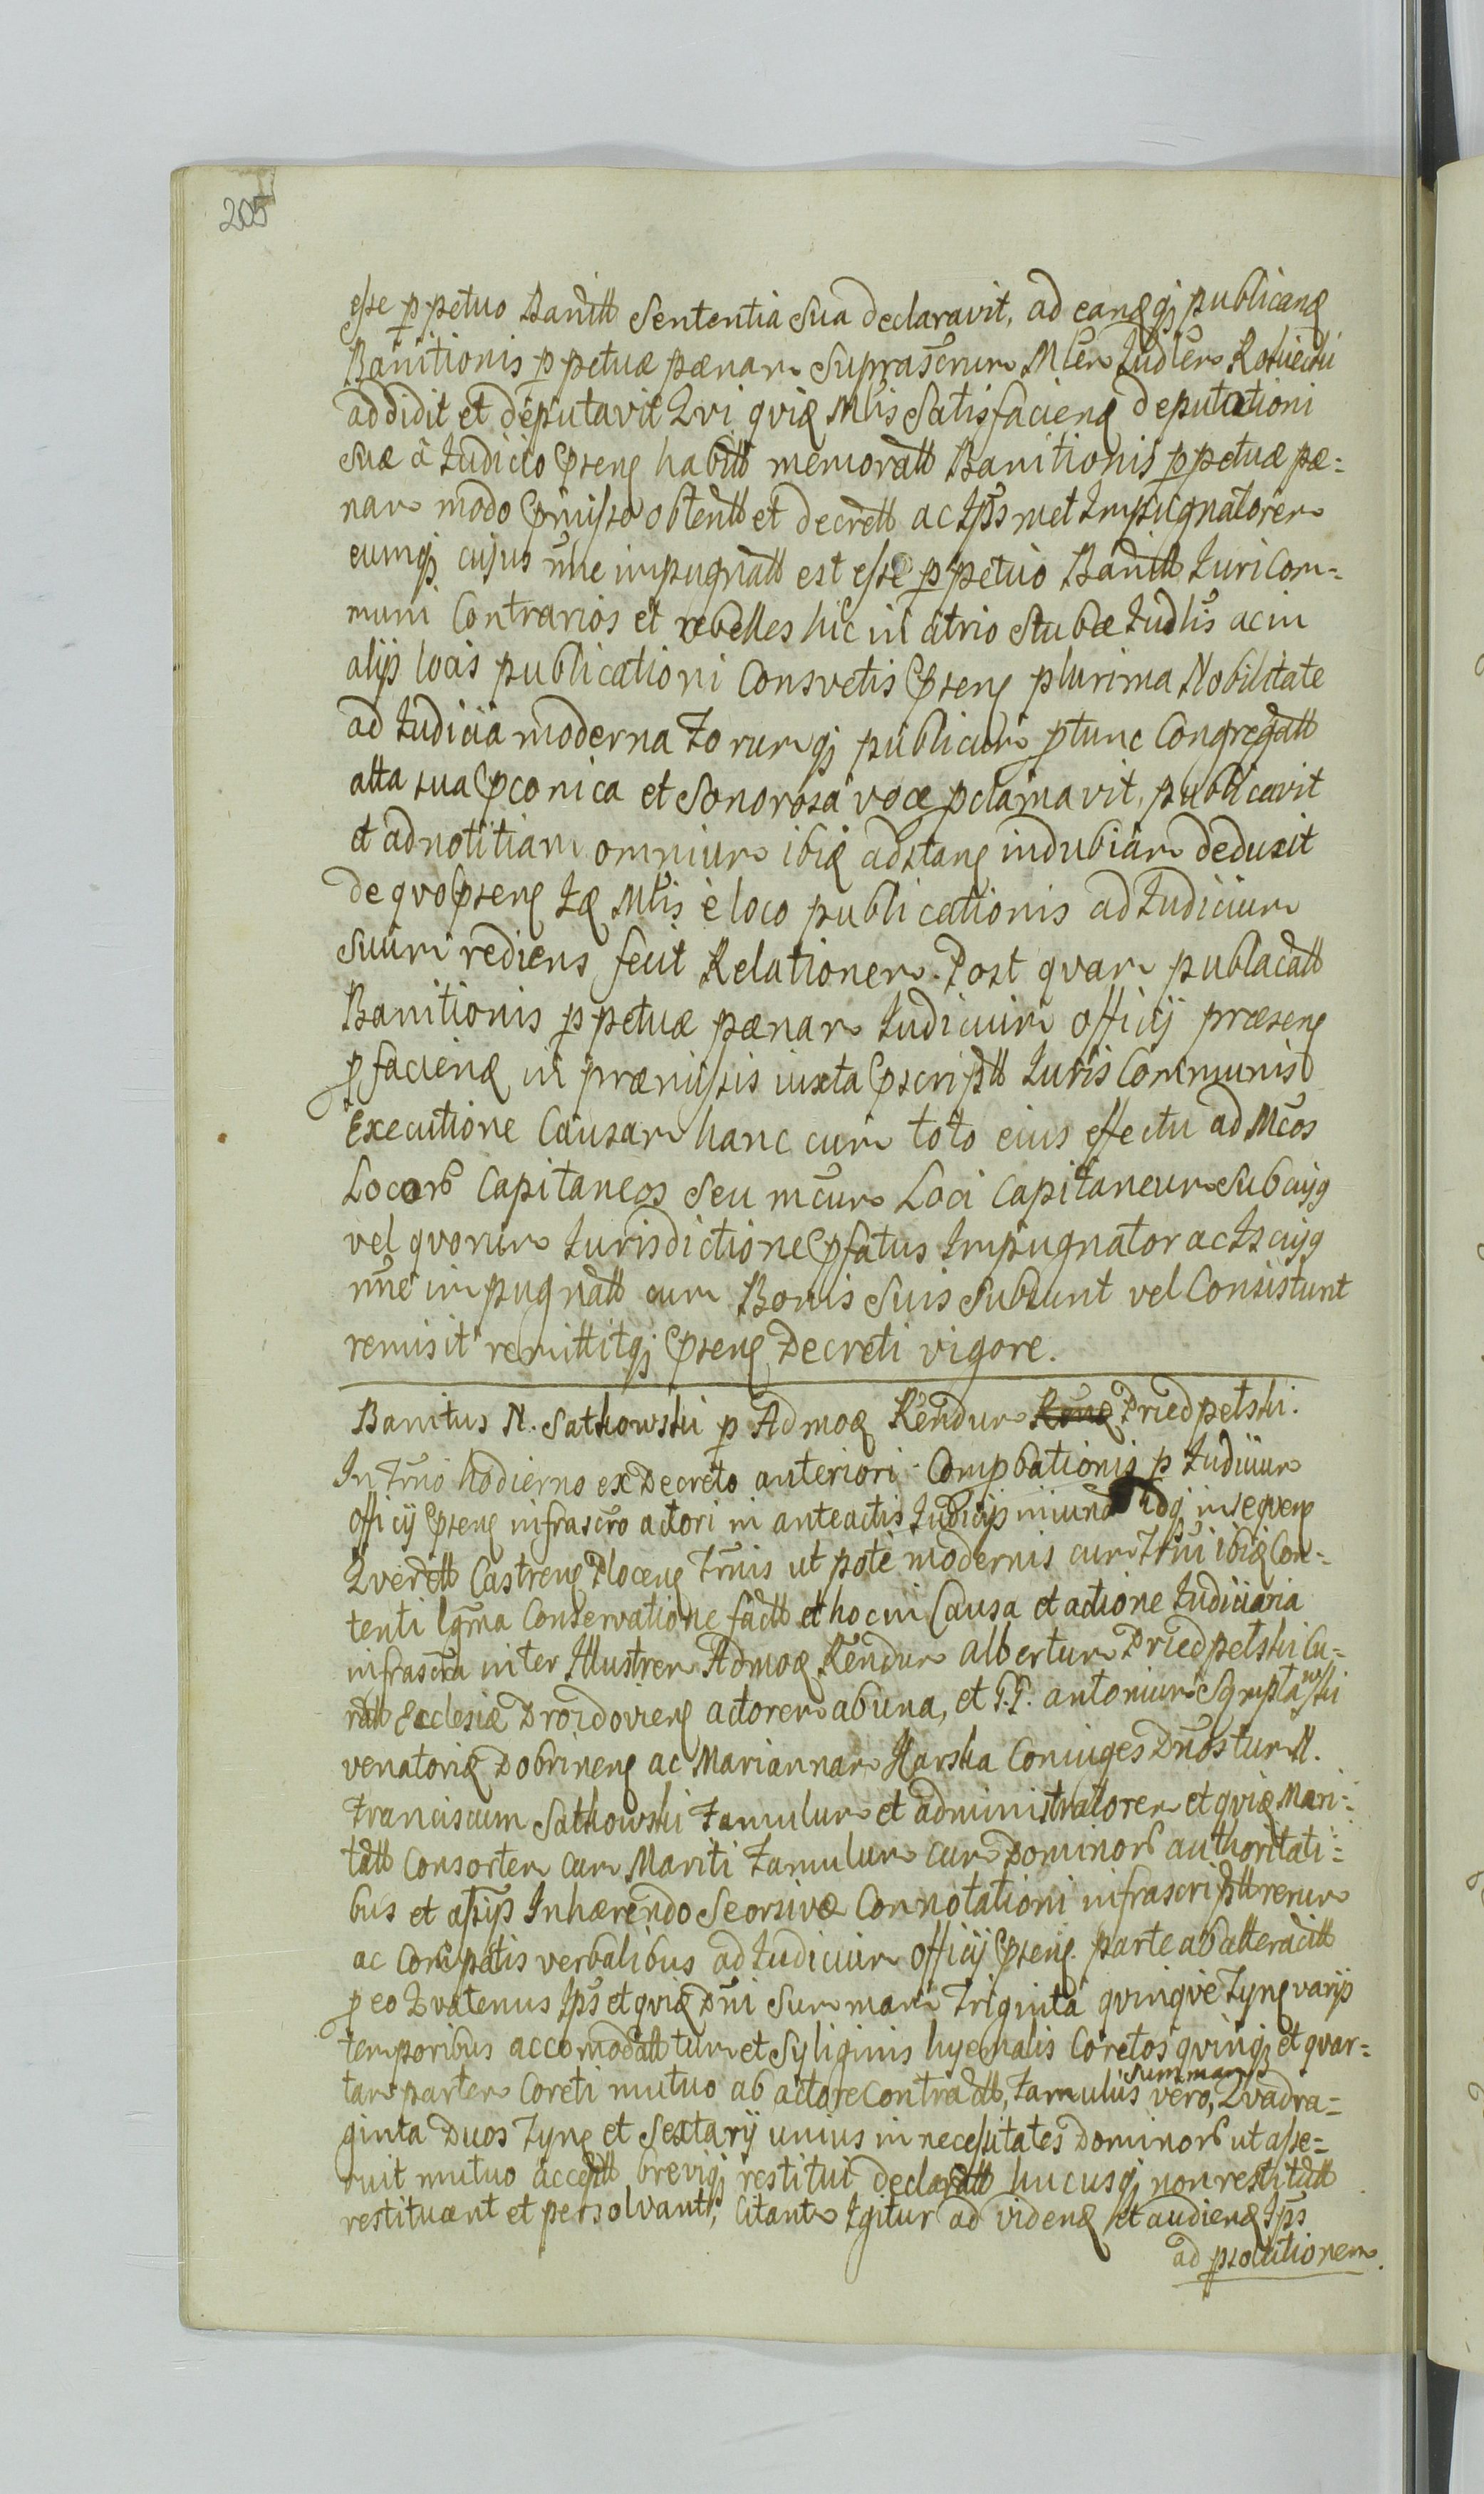 205
esse ppetuo Banitt Sententia Sua declaravit, ad eandqz publicand
Banitionis ppetuæ pænam Suprascrum Mlem Judlem
addidit et deputavit Qvi qvid Mlis Satisfaciend deputationi
Suæ â Judicio Psens habitt memoratt Banitionis ppetuæ pæ=
nam modo Pmisso obtentt et decrett ac Ipsmet Impugnatorem
eumqz cujus nne impugnatt est esse ppetuo Banitt Juri Com=
muni Contrarios et rebelles hic in atrio Stubæ Judlis ac in
alijs locis publicationi Consvetis Psens plurima Nobilitate
ad Judicia moderna Forumqz publicum ptunc Congregatt
alta sua Pconica et Sonorosa voce pclamavit, publicavit
et ad notitiam omnium ibid adstans indubiam deduxit
de qvo Psens Id Mlis è loco publicationis ad Judicium
Suum rediens fecit Relationem. Post qvam publacatt
Banitionis ppetuæ pænam Judicium Officij præsens
p faciend in præmissis iuxta Pscriptt Juris Communis
Executione Causam hanc cum toto eius effectu ad Mcos
Locor Capitaneos Seu mcum Loci Capitaneum Sub cujq
vel qvorum Jurisdictione Pfatus Impugnator ac Is cujq
nne impugnatt cum Bonis Suis Subsunt vel Consistunt
remisit remittitqz Psens Decreti vigore.
Banitus N. Sathowski p Admod Rendum Priedpetski.
In Trno hodierno ex Decreto anteriori Compbationis p Judicium
Officij Psens infrascro actori in anteactis Judicijs iniunct adqz inseqvens
Qverett Castrens Plocens Trnis ut pote modernis cum Trni ibid Con=
tenti lgma Conservatione factt et hoc in Causa et actione Judiciaria
infrascra inter Illustrem Admod Rendum Albertum Priedpetski Cu=
ratt Ecclesiæ Drozdoviens actorem ab una, et P.P. Antonium
venatorid Dobrinens ac Mariannam Karska Coniuges Dnos tum N.
Franciscum Sathowski Famulum et administratorem et qvid Mari=
tatt Consortem cum Mariti Famulum cum Dominor authoritati=
bus et Inhærendo Seorsivæ Connotationi infrascriptt rerum
ac Compatis verbalibus ad Judicium Officij Psens parte ab altera citt
p eo Qvatenus Ips et qvid Dni Summam Triginta qvinqve Tynf varijs
temporibus accomodatt tum et Syliginis hyemalis Coretos qvinqz et qvar=
tam partem Coreti mutuo ab actore Contractt, Famulus vero, Summam Qvadra=
ginta Duos Tynf et Sextarij unius in necessitates Dominor ut asse=
ruit mutuo acceptt brevigz restitui declaratt hucusqz non restitutt
restituant et persolvant, Citantr Igitur ad vidend et audiend Ips
ad psolutionem.